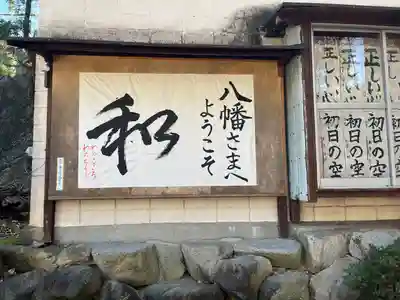 八幡さまへ
ようこそ
和
正しい心
正しい心
初日の空
初日の空
初日の空